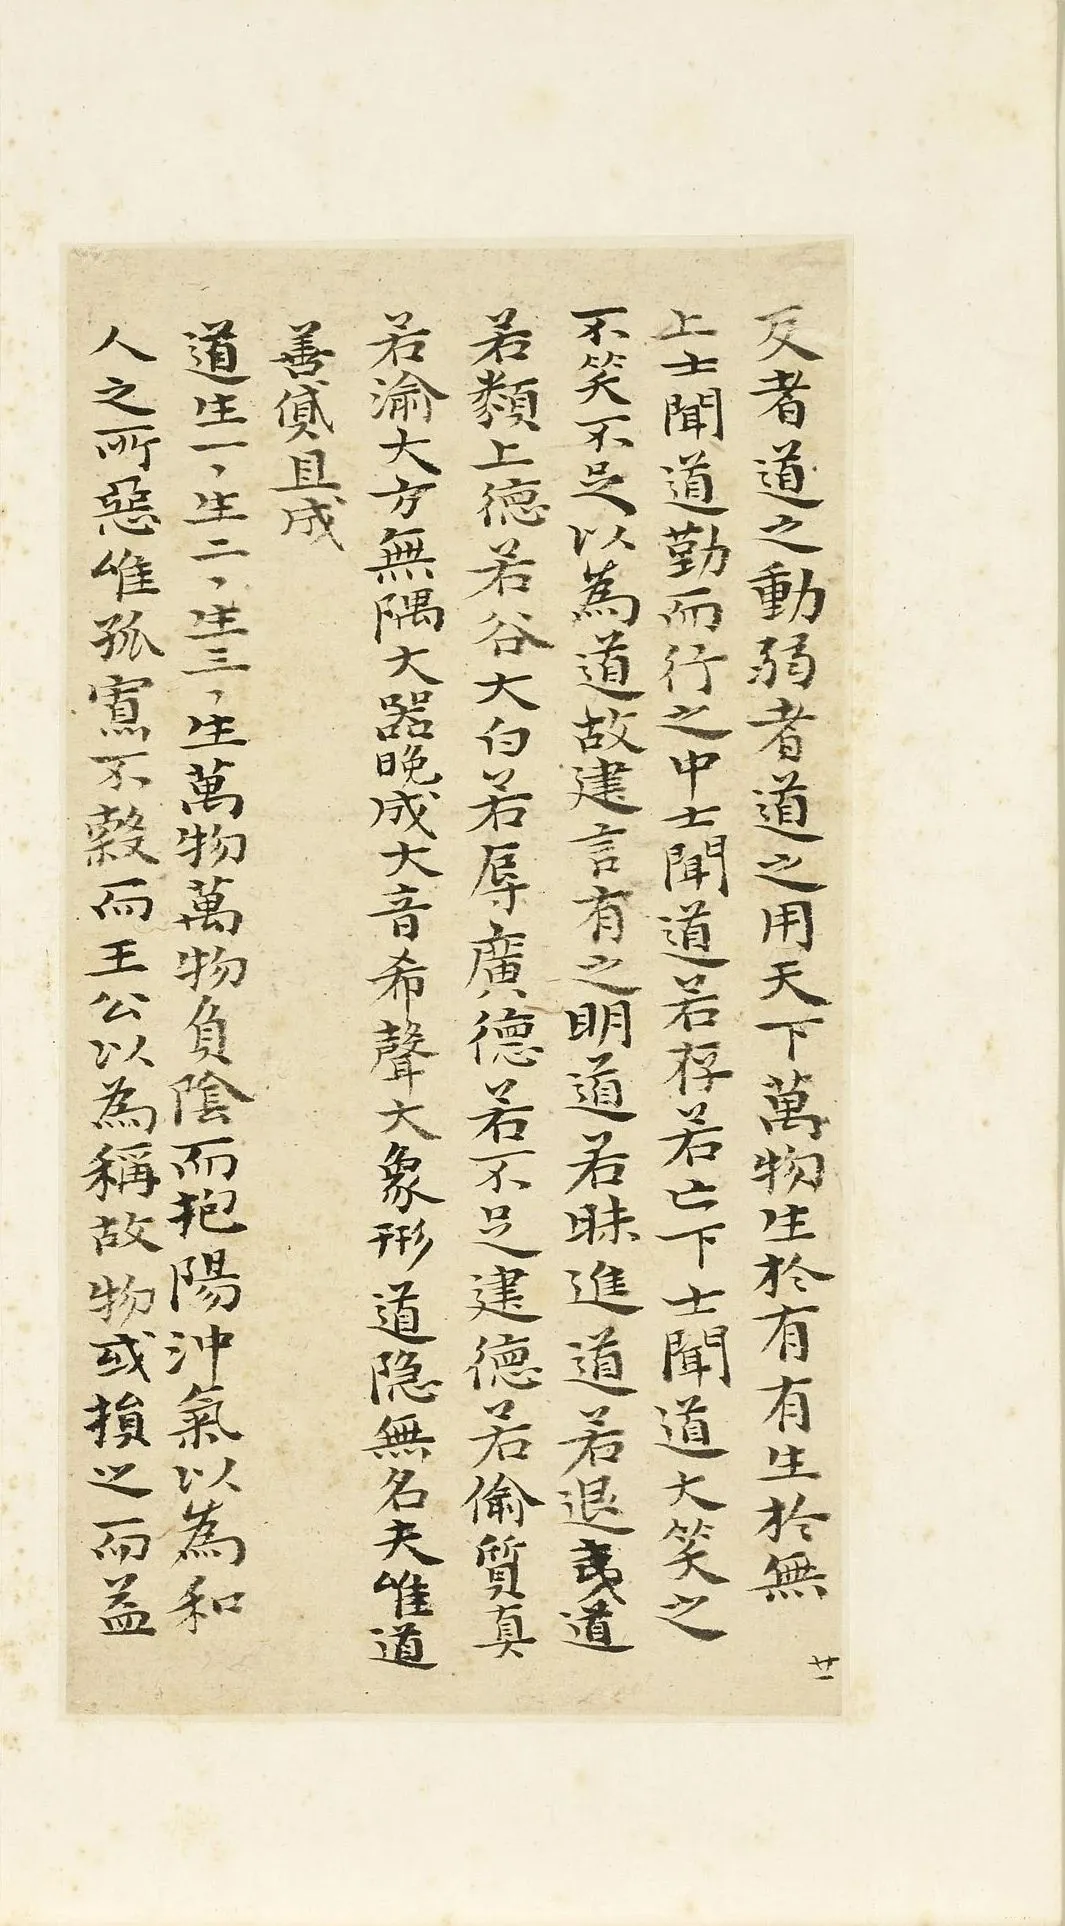 反者道之動弱者道之用天下萬物生於有有生於無
上士聞道勤而行之中士聞道若存若亡下士聞道大笑之
不笑不足以為道故建言有之明道若昧進道若退夷道
若纇上德若谷大白若辱廣德若不足建德若偷質真
若渝大方無隅大器晚成大音希聲大象形道隱無名夫唯道
善貸且成
道生一、生二、生三、生萬物萬物負陰而抱陽沖氣以為和
人之所惡唯孤寡不穀而王公以為稱故物或損之而益
廿一